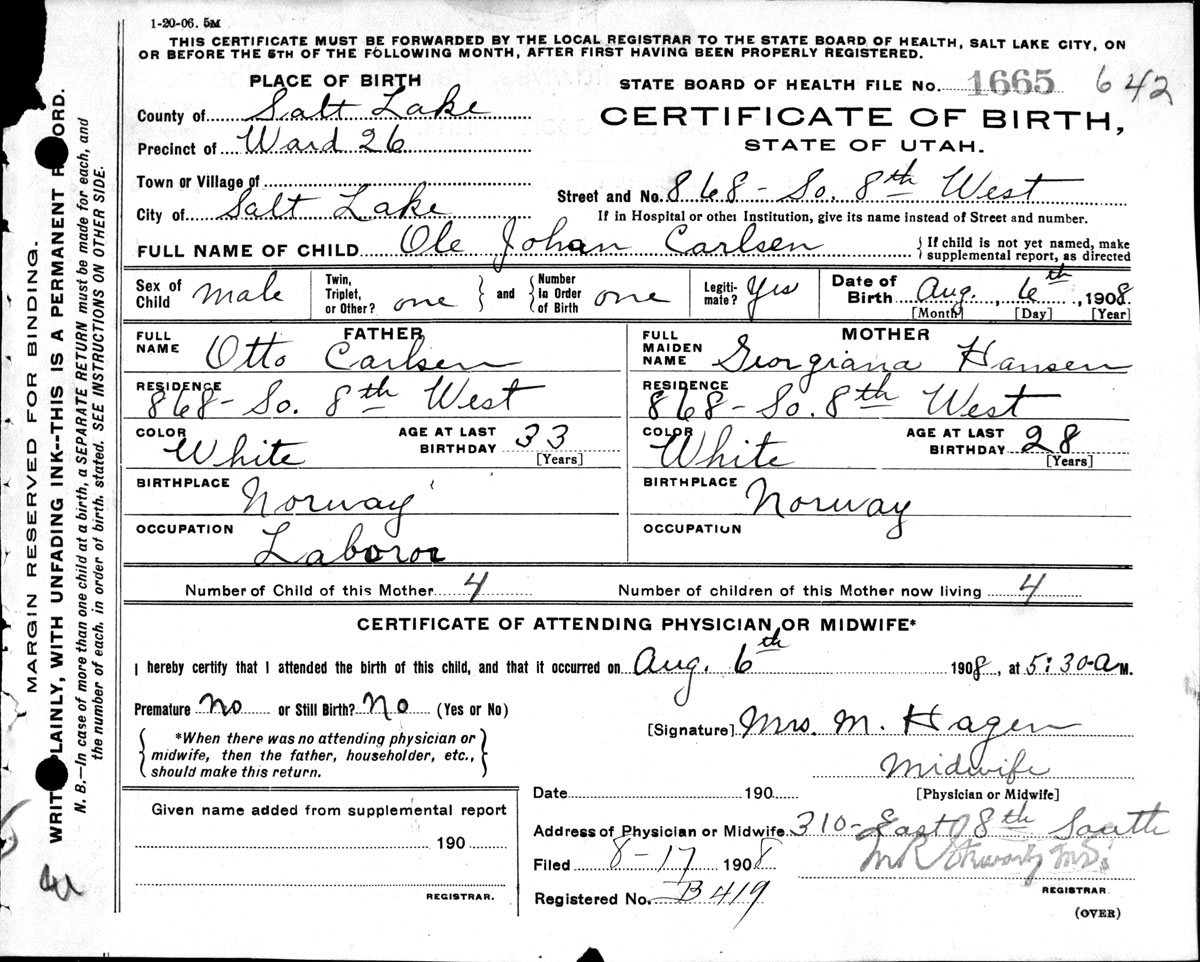 1-20-06. 5M
THIS CERTIFICATE MUST BE FORWARDED BY THE LOCAL REGISTRAR TO THE STATE BOARD OF HEALTH, SALT LAKE CITY, ON
OR BEFORE THE 5TH OF THE FOLLOWING MONTH, AFTER FIRST HAVING BEEN PROPERLY REGISTERED.
PLACE OF BIRTH
County of Salt Lake
Precinct of Ward 26
Town or Village of
City of Salt Lake
STATE BOARD OF HEALTH FILE No. 1665 642
CERTIFICATE OF BIRTH,
STATE OF UTAH.
Street and No. 868 - So. 8th West
If in Hospital or other Institution, give its name instead of Street and number.
FULL NAME OF CHILD Ole Johan Carlsen
If child is not yet named, make
supplemental report, as directed
Sex of Child male
Twin, Triplet, or Other? one and Number in Order of Birth one
Legiti-mate? Yes
Date of Birth Aug. 6th, 1908
[Month] [Day] [Year]
FATHER
FULL NAME Otto Carlsen
RESIDENCE
868 - So. 8th West
COLOR White AGE AT LAST BIRTHDAY 33
[Years]
BIRTHPLACE Norway
OCCUPATION
Laboror
MOTHER
FULL MAIDEN NAME Georgiana Hansen
RESIDENCE
868 - So. 8th West
COLOR White AGE AT LAST BIRTHDAY 28
[Years]
BIRTHPLACE Norway
OCCUPATION
Number of Child of this Mother 4 Number of children of this Mother now living 4
CERTIFICATE OF ATTENDING PHYSICIAN OR MIDWIFE*
I hereby certify that I attended the birth of this child, and that it occurred on Aug. 6th 1908, at 5:30-a M.
Premature no or Still Birth? No (Yes or No)
*When there was no attending physician or
midwife, then the father, householder, etc.,
should make this return.
[Signature] Mrs. M. Hagen
Midwife
[Physician or Midwife]
Given name added from supplemental report
190
REGISTRAR.
Date 190
Address of Physician or Midwife 310 - East 8th South
Filed 8-17 1908
REGISTRAR
Registered No. B419
(OVER)
MARGIN RESERVED FOR BINDING.
WRIT PLAINLY, WITH UNFADING INK--THIS IS A PERMANENT R ORD.
N. B.—In case of more than one child at a birth, a SEPARATE RETURN must be made for each, and
the number of each, in order of birth, stated. SEE INSTRUCTIONS ON OTHER SIDE.